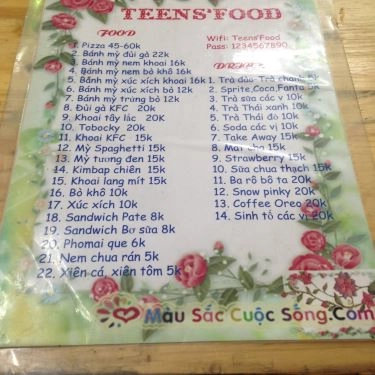 TEENS'FOOD
Wifi: Teens'Food
Pass: 1234567890
FOOD
1. Pizza 45-60k
2. Bánh mỳ đùi gà 22k
3. Bánh mỳ nem khoai 16k
4. Bánh mỳ nem bò khô 16k
5. Bánh mỳ xúc xích khoai 16k
6. Bánh mỳ xúc xích bò 12k
7. Bánh mỳ trứng bò 12k
8. Đùi gà KFC 20k
9. Khoai tây lắc 20k
10. Tobocky 20k
11. Khoai KFC 15k
12. Mỳ Spaghetti 15k
13. Mỳ tương đen 15k
14. Kimbap chiên 15k
15. Khoai lang mít 15k
16. Bò khô 10k
17. Xúc xích 10k
18. Sandwich Pate 8k
19. Sandwich Bơ sữa 8k
20. Phomai que 6k
21. Nem chua rán 5k
22. Xiên cá, xiên tôm 5k
DRINK
1. Trà đào- Trà chanh
2. Sprite,Coca,Fanta
3. Trà sữa các v 10k
4. Trà Thái xanh 10k
5. Trà Thái đỏ 10k
6. Soda các vị 10k
7. Take Away 15k
8. 15k
9. Strawberry 15k
10. Sữa chua thạch 15k
11. Ba rô bô ta 20k
12. Snow pinky 20k
13. Coffee Oreo 20k
14. Sinh tố các vị 20k
Màu Sắc Cuộc Sống.Com